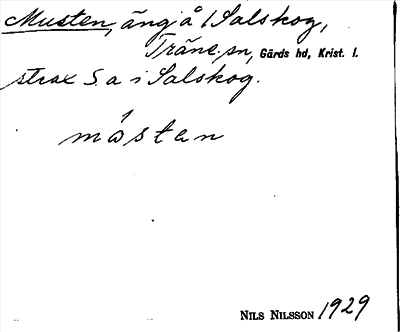 Musten, äng å 1 Salskog,
Träne sn, Gärds hd, Krist. l.
strax S. a i Salskog.
måstan
NILS NILSSON 1929